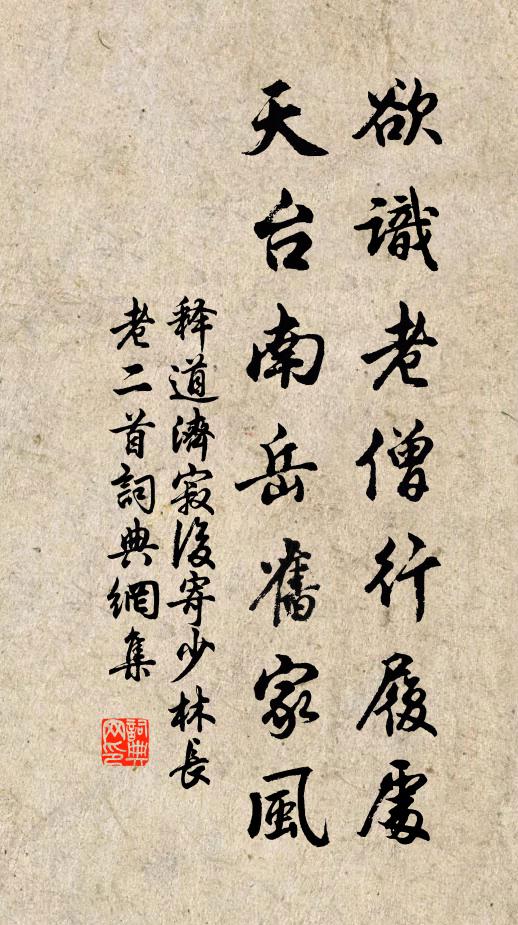 欲識老僧行履處
天台南岳舊家風
释道濟寂後寄少林長
老二首詞典網集
詞典
网印